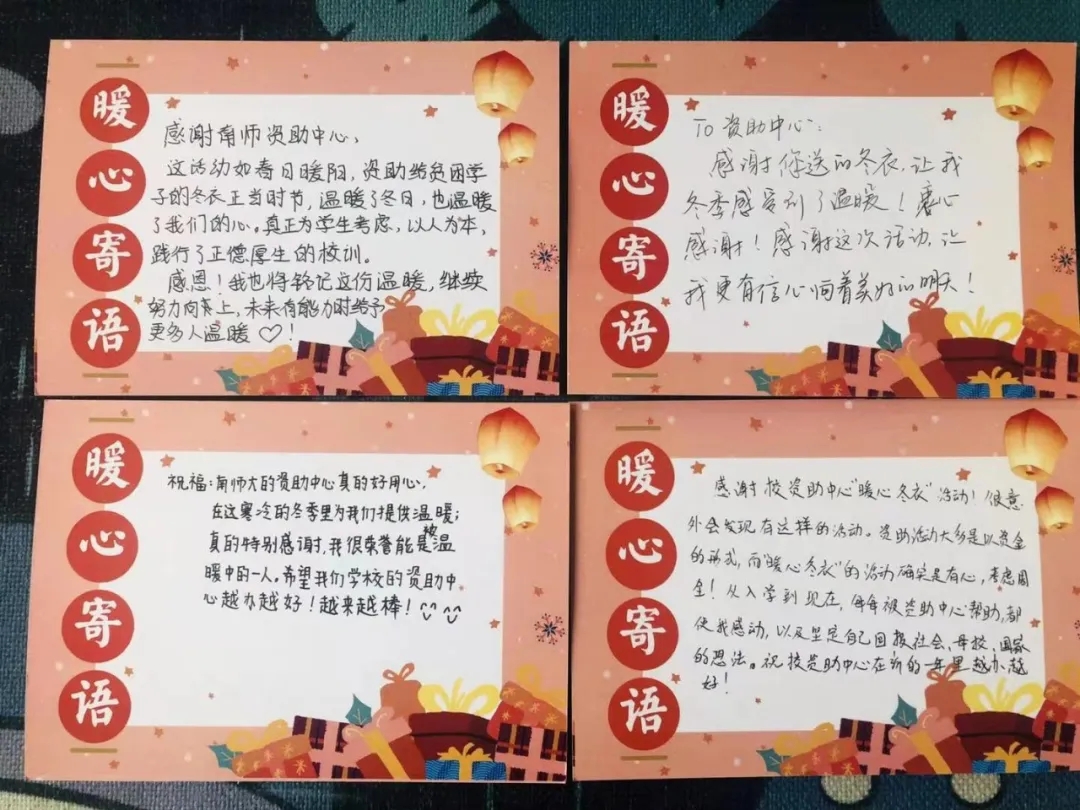 暖心寄语
感谢南师资助中心,
这活动如春日暖阳,资助给贫困学
子的冬衣正当时节,温暖了冬日,也温暖
了我们的心。真正为学生考虑,以人为本,
践行了正德厚生的校训。
感恩!我也将铭记这份温暖,继续
努力向上,未来有能力时给予
更多人温暖♡!
暖心寄语
TO 资助中心:
感谢你送的冬衣,让我
冬季感受到了温暖!衷心
感谢!感谢这次活动,让
我更有信心向着美好的明天!
暖心寄语
祝福:南师大的资助中心真的好用心,
在这寒冷的冬季里为我们提供温暖;
真的特别感谢,我很荣誉能是被温
暖中的一人。希望我们学校的资助中
心越办越好!越来越棒!
暖心寄语
感谢校资助中心“暖心冬衣”活动!很意
外会发现有这样的活动。资助活动大多是以资金
的形式,而“暖心冬衣”的活动确实是有心,考虑周
全!从入学到现在,每年被资助中心帮助,都
使我感动,以及坚定自己回报社会、母校、国家
的想法。祝校资助中心在新的一年里越办越
好!